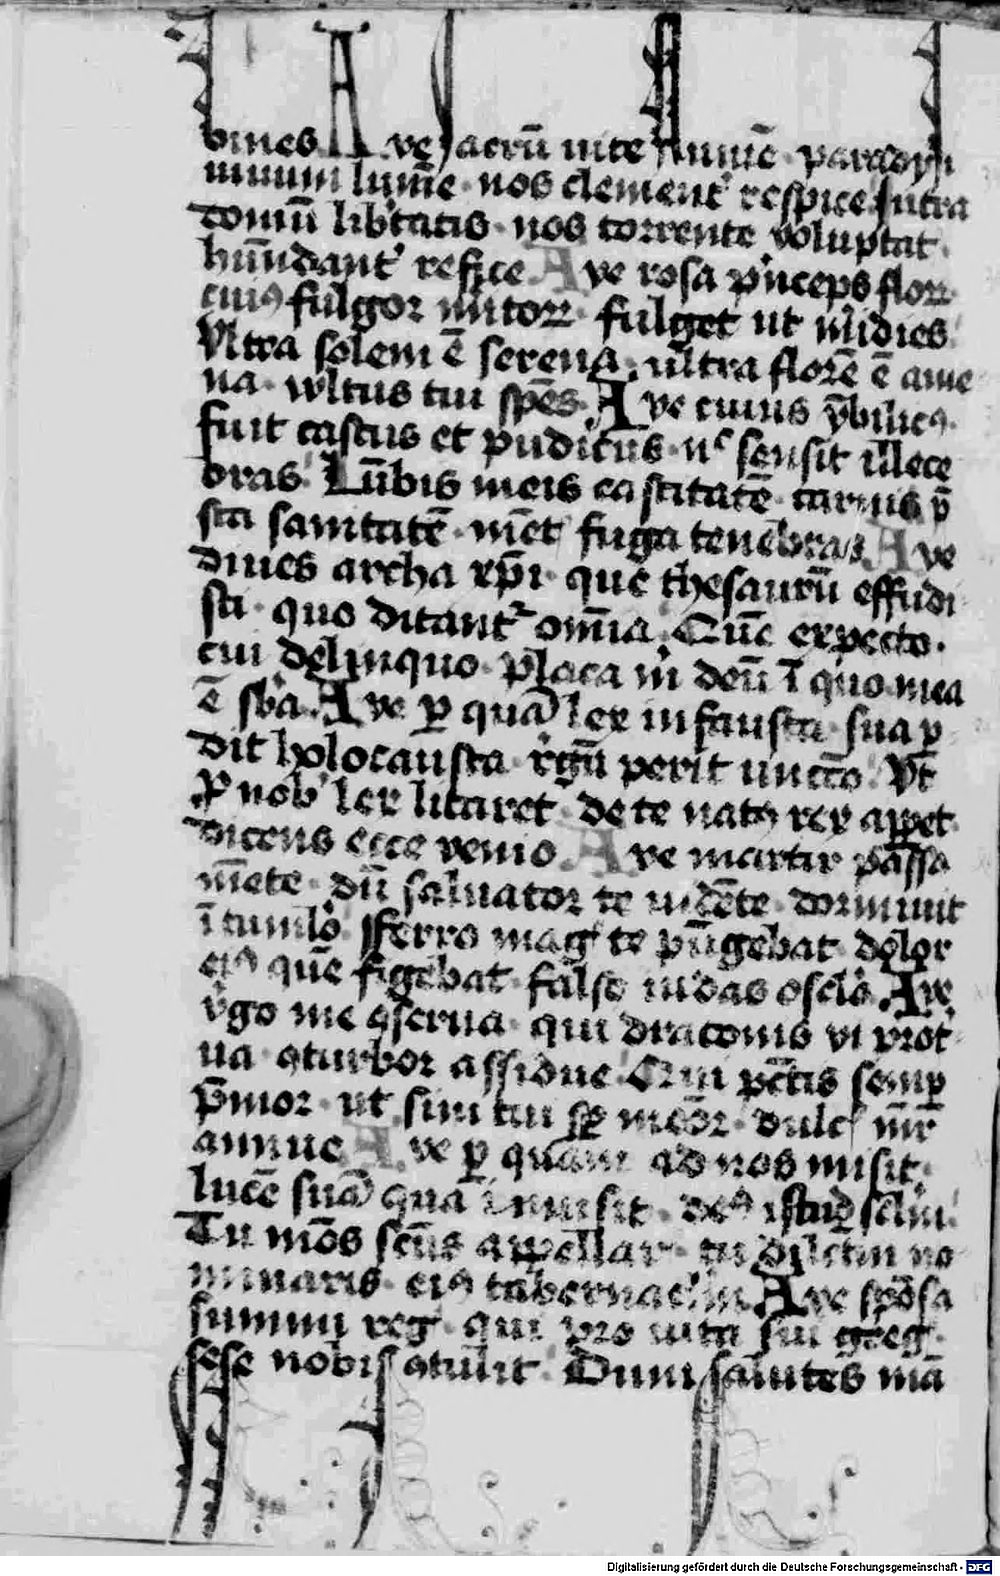 omnes Ave sacrū vite flumē · paradysi
nimium lumē · nos clement' respice Intra
domū lib'tatis · nos torrente voluptat'
hūndant' refice Ave rosa p'nceps florꝝ
cuiꝯ fulgor nitorꝝ · fulget ut m'idies
Ultra solem ē serena · ultra florē ē ame
na · vultus tui spēs · Ave cuius ūbilicꝯ
fuit castus et pudicus · nͨ sensit illece
bras · Lūbis meis castitatē · carnis p̄
sta sanitatē · mēt' fuga tenebras Ave
dives archa xp̄i · que thesaurū effudi
sti · quo ditant' omīa · Cūc expecto ·
cui delinquo · placa m' deū ī quo mea
ē sb'a · Ave ꝑ quā lex infausta · sua ꝑ
dit holocausta · r̄gū perit uncto · Ut
ꝓ nob' lex litaret · de te natꝯ rex apꝑet
dicens ecce venio Ave martir passa
mēte · dū salvator te vidēte · dormivit
ī tumlo · Ferro mag' te pūgebat dolor
eiꝯ quē figebat · falso iudas osclo · Ave
v'go me ꝯserva · qui draconis vi prot'
va · ꝯturbor assidue Cri'i pctīs semꝑ
p̄mor · ut sim tui sꝑ memor · dulc' mīr
annue Ave ꝑ quam ad nos misit
lucē suā qua īmisit · deꝯ istud sclm
Tu mōs scūs appellar' · tu dilctm no
minaris · eiꝯ tabernaclm Ave spōsa
summi reg' · qui pro vita sui greg'
sese nobis ꝯtulit · Dum salutēs mā
Digitalisierung gefördert durch die Deutsche Forschungsgemeinschaft - DFG